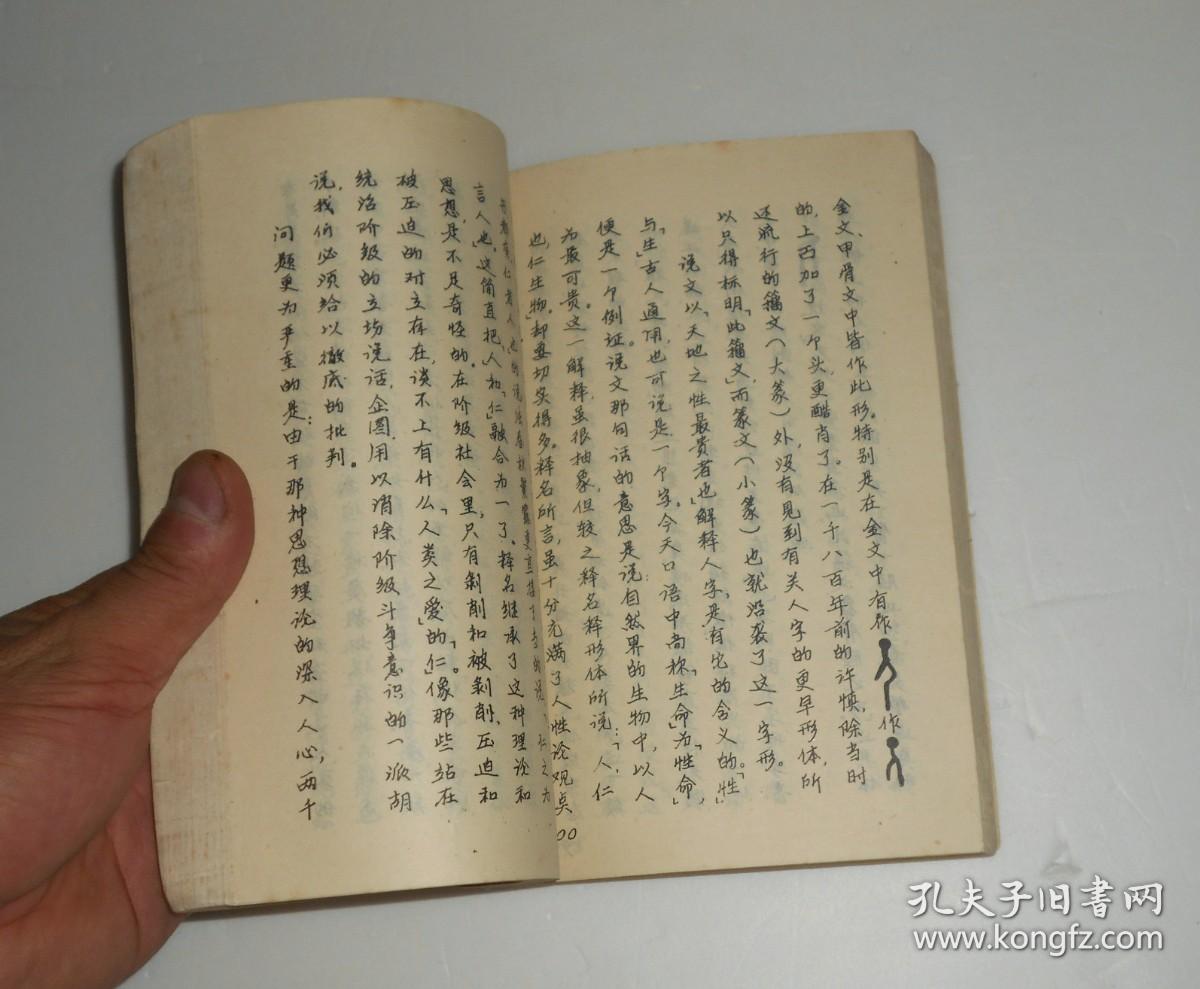 金文、甲骨文中皆作此形。特别是在金文中有作 作
的,上面加了一个头,更酷肖了。在一千八百年前的许慎,除当时
还流行的籀文(大篆)外,没有见到有关人字的更早形体,所
以只得标明「此籀文」,而篆文(小篆)也就沿袭了这一字形。
说文以「天地之性最贵者也」解释人字,是有它的含义的。「性」
与「生」古人通用,也可说是一个字。今天口语中尚称「生命」为「性命」,
便是一个例证。说文那句话的意思是说:自然界的生物中,以人
为最可贵。这一解释,虽很抽象,但较之释名释形体所说:「人,仁
也,仁生物」却要切实得多。释名所言,虽十分充满了人性论观点
00
言人也」,这简直把「人」和「仁」融合为一了。释名继承了这种理论和
思想,是不足奇怪的。在阶级社会里,只有剥削和被剥削、压迫和
破压迫的对立存在,谈不上有什么「人类之爱」的「仁」。像那些站在
统治阶级的立场说话,企图用以消除阶级斗争意识的一派胡
说,我们必须给以彻底的批判。
问题更为严重的是:由于那种思想理论的深入人心,两千
孔夫子旧书网
www.kongfz.com